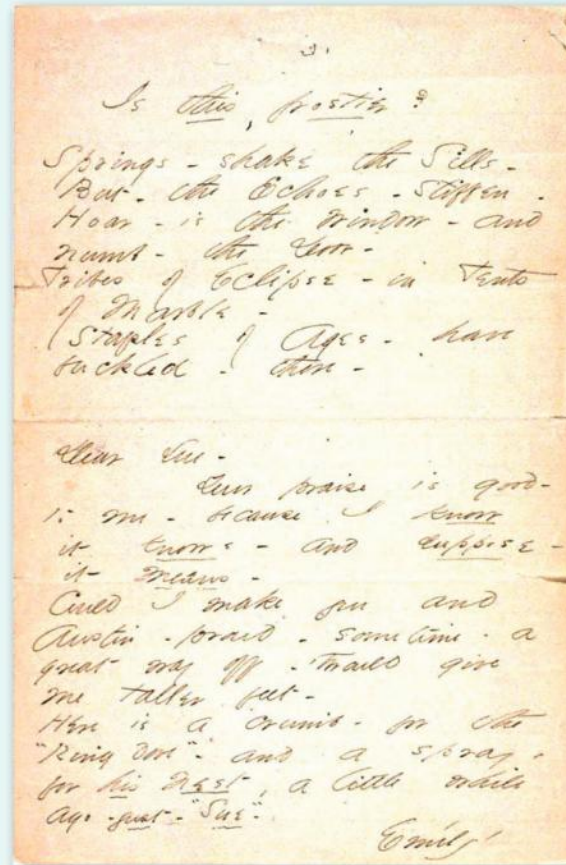 2.
Is this, frostier?
Springs - shake the Sills -
But - the Echoes - stiffen -
Hoar - is the Window - and
numb - the Door -
Tribes of Eclipse - in Tents
of Marble -
Staples of Ages - have
buckled - there -
Dear Sue -
Your praise is good -
to me - because I know
it knows - and suppose -
it means -
Could I make you and
Austin - proud - sometime - a
great way off - 'twould give
me taller feet -
Here is a crumb - for the
"Ring dove" - and a spray -
for his Nest, a little while
ago - just - "Sue".
Emily